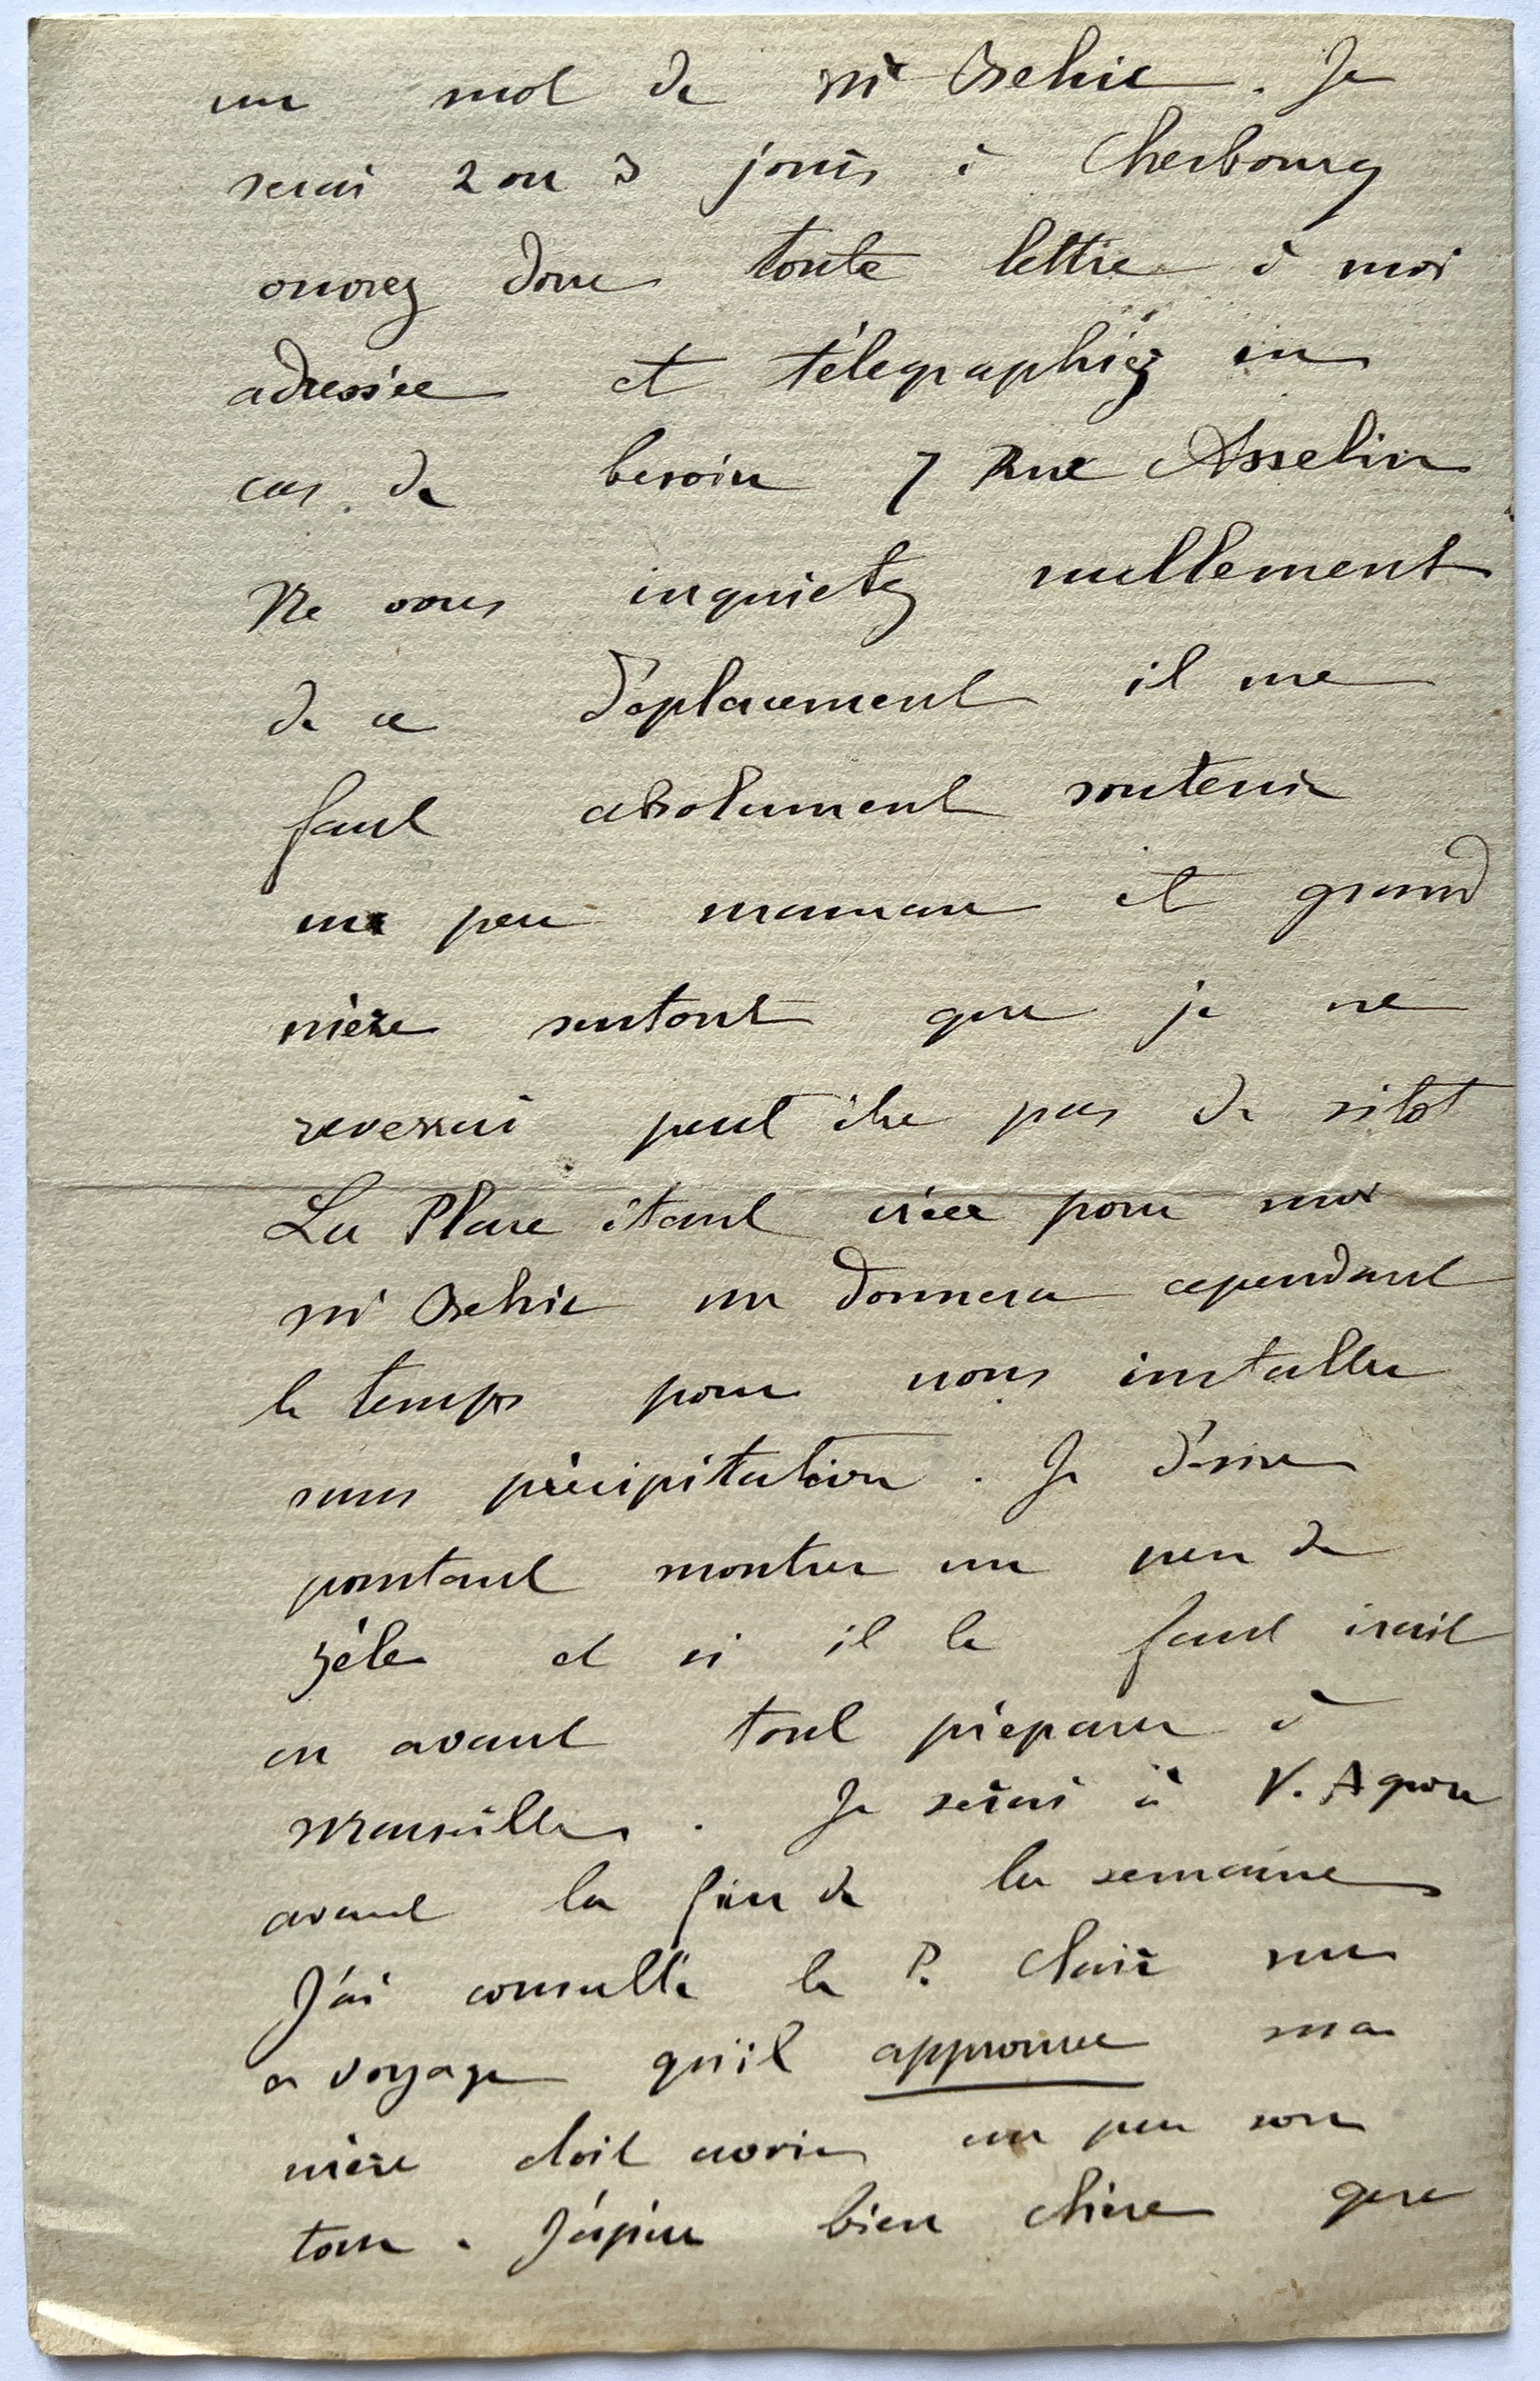 un mot de Mr Osehie. Je
serai 2 ou 3 jours à Cherbourg
ouvrez donc toute lettre à moi
adressée et télégraphiez en
cas de besoin 7 Rue Asselin
Ne vous inquietez nullement
de ce déplacement il me
faut absolument soutenir
un peu maman et grand
mère surtout que je ne
reverrai peut être pas de sitot
La Place étant créée pour moi
Mr donnera cependant
le temps pour nous installer
sans précipitation. Je désire
pourtant montrer un peu de
zèle et si il le faut irait
en avant tout préparer à
Marseille. Je serai à V. Agron
avant la fin de la semaine
J'ai consulté le P. Clair sur
ce voyage qu'il approuve ma
mère doit avoir un peu son
tour. J'espère bien chère que